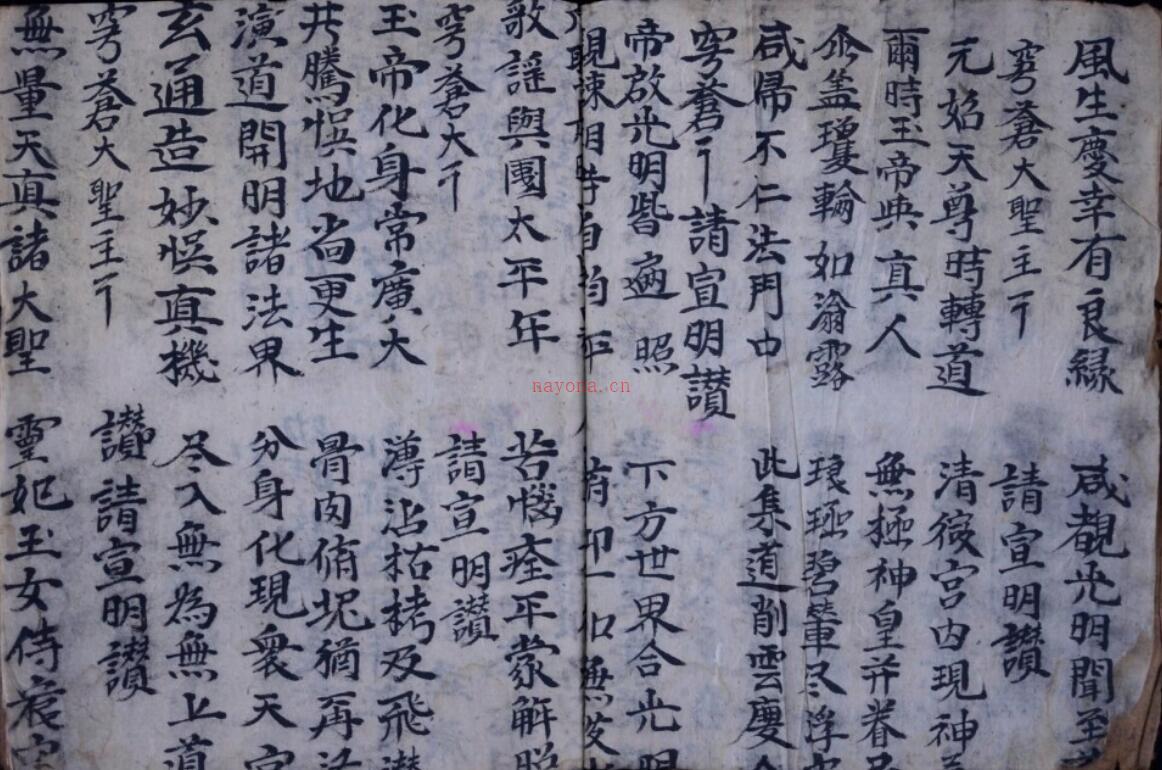 風生慶幸有良緣 咸覩光明聞至
穹蒼大聖主 請宣明讃
元始天尊時轉道 清微宮內現神
爾時玉帝與真人 無極神皇并眷
傘盖瓊輪如滃露 琅琊碧輦尽浮
咸帰不仁法門中 此集道削雲慶
穹蒼 請宣明讃
帝啟光明皆遍照 下方世界合光明
歌謡與國太平年 苦惱痊平蒙解脱
穹蒼大 請宣明讃
玉帝化身常廣大 溥沾枯栲及飛潜
共騰悮地尚更生 骨肉脩堄猶再活
演道開明諸法界 分身化現衆天宮
玄通造妙悮真機 尽入無為無上道
穹蒼大聖主 讃請宣明讃
無量天真諸大聖 靈妃玉女侍宸
nayona.cn